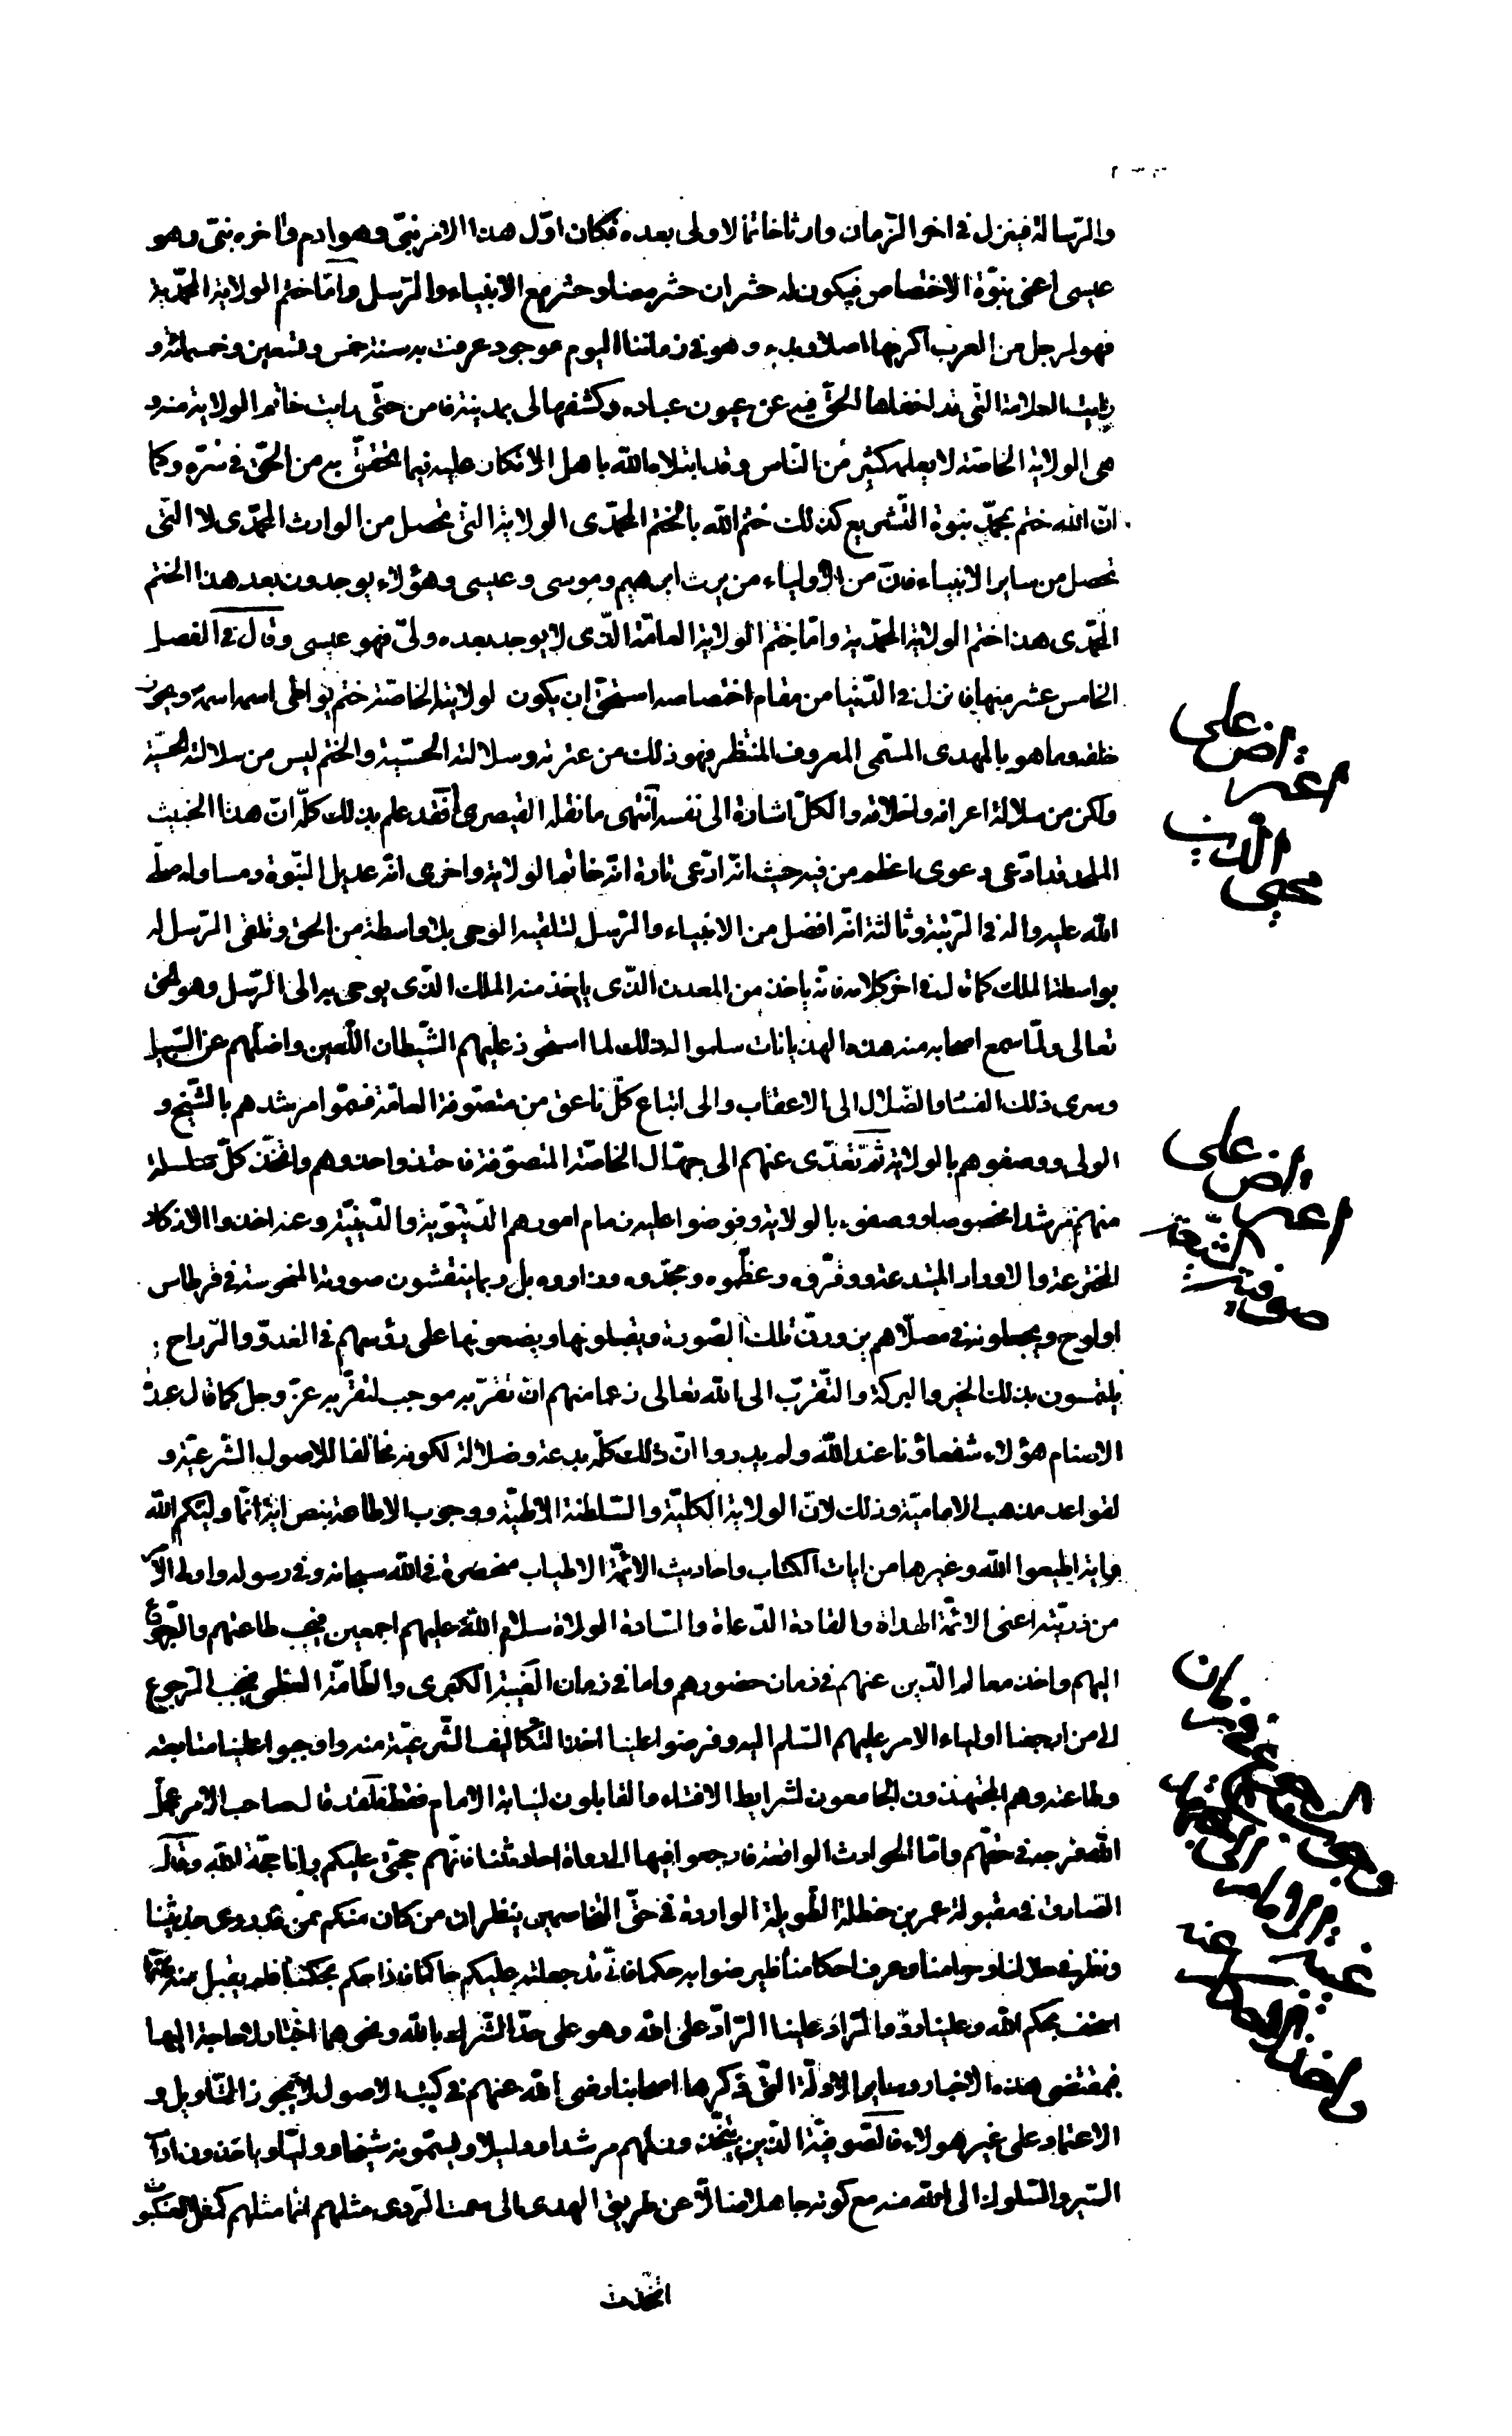 والرّسالة فينزل في اخر الزّمان وارثا خاتما لا ولى بعده فكان اوّل هذا الامر نبىّ وهو ادم واخره نبىّ وهو
عيسى اعنى نبوّة الاختصاص فيكون له حشران حشر معنا وحشر مع الانبياء والرّسل وامّا ختم الولاية المحمّدية
فهو لرجل من العرب اكرمها اصلا ويدا وهو في زماننا اليوم موجود عرفت به سنة خمس وتسعين وخمسمائة و
رايت العلامة الّتى قد اخفاها الحقّ فيه عن عيون عباده وكشفها لى بمدينة فاس حتّى رايت خاتم الولاية منه و
هى الولاية الخاصّة لا يعلمه كثير من النّاس وقد ابتلاه الله باهل الانكار عليه فيما يتحقّق به من الحقّ في سرّه وكما
انّ الله ختم بمحمّد نبوة التّشريع كذلك ختم الله بالختم المحمّدى الولاية الّتى تحصل من الوارث المحمّدى لا الّتى
تحصل من ساير الانبياء فانّ من الاولياء من يرث ابرهيم وموسى وعيسى وهؤلاء يوجدون بعد هذا الختم
المحمّدى هذا ختم الولاية المحمّدية وامّا ختم الولاية العامّة الّذى لا يوجد بعده ولىّ فهو عيسى وقال في الفصل
الخامس عشر منها فانزل في الدّنيا من مقام اختصاصه استحقّ ان يكون لولايته الخاصّة ختم يواطى اسمه اسمه ويحوز
خلقه وما هو بالمهدى المسمّى المعروف المنتظر فهو ذلك من عترته وسلالته الحسّية والختم ليس من سلالته الحسّية
ولكن من سلالة اعراقه واخلاقه والكلّ اشارة الى نفسه انتهى ما نقله القيصرى افقد علم بذلك كلّه انّ هذا الخبيث
الملحد قد ادّعى دعوى اعظم من فيه حيث انّه ادّعى تارة انّه خاتم الولاية واخرى انّه عديل النّبوة ومساو له صلّى
الله عليه واله في الرّتبة وثالثة انّه افضل من الانبياء والرّسل لتلقيه الوحى بلا واسطة من الحق وتلقى الرّسل له
بواسطة الملك كما قال في اخر كلامه فانّه ياخذ من المعدن الّذى ياخذ منه الملك الّذى يوحى به الى الرّسل وهو الحق
تعالى ولمّا سمع اصحابه منه هذه الهذيانات سلموا له ذلك لما استحوذ عليهم الشّيطان اللّعين واضلّهم عن السّبيل
وسرى ذلك الفساد والضّلال الى الاعقاب والى اتباع كلّ ناعق من متصوّفة العامّة فسمّوا مرشدهم بالشّيخ و
الولى ووصفوهم بالولاية ثمّ تعدّى عنهم الى جهّال الخاصّة المتصوّفة فاحتذوا حذوهم واتّخذ كلّ سلسلة
منهم مرشدا مخصوصا ووصفوه بالولاية وفوضوا عليه زمام امورهم الدّنيويّة والدّينيّة وعنه اخذوا الاذكار
المخترعة والاوراد المبتدعة ووقّروه وعظّموه ومجّدوه وزاروه بل ربما ينقشون صورته المنحوسة في قرطاس
او لوح ويجعلونه في مصلّاهم يزورون تلك الصّورة ويقبلونها ويضعونها على رؤسهم في الغدوّ والرّواح
يلتمسون بذلك الخير والبركة والتّقرّب الى الله تعالى زعما منهم انّ تقرّبه موجب لتقرّبه عزّ وجل كما قال عبدة
الاصنام هؤلاء شفعاؤنا عند الله ولم يدروا انّ ذلك كلّه بدعة وضلالة لكونه مخالفا للاصول الشّرعيّة و
لقواعد مذهب الاماميّة وذلك لانّ الولاية الكليّة والسّلطنة الالهيّة ووجوب الاطاعة بنصّ اية انّما وليّكم الله
واية اطيعوا الله وغيرها من ايات الكتاب واحاديث الائمّة الاطياب منحصرة في الله سبحانه وفي رسوله واولى الامر
من ذريّته اعنى الائمّة الهداة والقادة الدّعاة والسّادة الولاة سلام الله عليهم اجمعين فيجب طاعتهم والرّجوع
اليهم واخذ معالم الدّين عنهم في زمان حضورهم واما في زمان الغيبة الكبرى والطّامّة العظمى فيجب الرّجوع
الى من ارجعنا اولياء الامر عليهم السّلم اليه وفرضوا علينا اخذ التّكاليف الشّرعيّة منه واوجبوا علينا متابعته
وطاعته وهم المجتهدون الجامعون لشرايط الافتاء والقابلون لنيابة الامام فقط فلقد قال صاحب الامر عجّل
الله فرجه في حقّهم وامّا الحوادث الواقعة فارجعوا فيها الى رواة احاديثنا فانّهم حجّتى عليكم وانا حجّة الله وقال
الصّادق في مقبولة عمر بن حنظلة الطّويلة الواردة في حقّ المتخاصمين ينظران من كان منكم ممّن قد روى حديثنا
ونظر في حلالنا وحرامنا وعرف احكامنا فليرضوا به حكما فانّى قد جعلته عليكم حاكما فاذا حكم بحكمنا فلم يقبل منه فانّما
استخف بحكم الله وعلينا ردّ والرّادّ علينا الرّادّ على الله وهو على حدّ الشّرك بالله ونحوهما اخبار لا حاجة اليها
فبمقتضى هذه الاخبار وساير الادلّة الّتى ذكرها اصحابنا رضى الله عنهم في كتب الاصول لا يجوز التّاويل و
الاعتماد على غير هولاء فالصّوفيّة الّذين يتّخذون لهم مرشدا ودليلا ويسمّونه شيخا ووليّا وياخذون اداب
السّير والسّلوك الى الله منه مع كونه جاهلا ضالّا عن طريق الهدى الى سمت الرّدى مثلهم انّما مثلهم كمثل العنكبوت
اتّخذت
اعتراض على
محيى الدّين
اعتراض على
صوفيّة الشّيعة